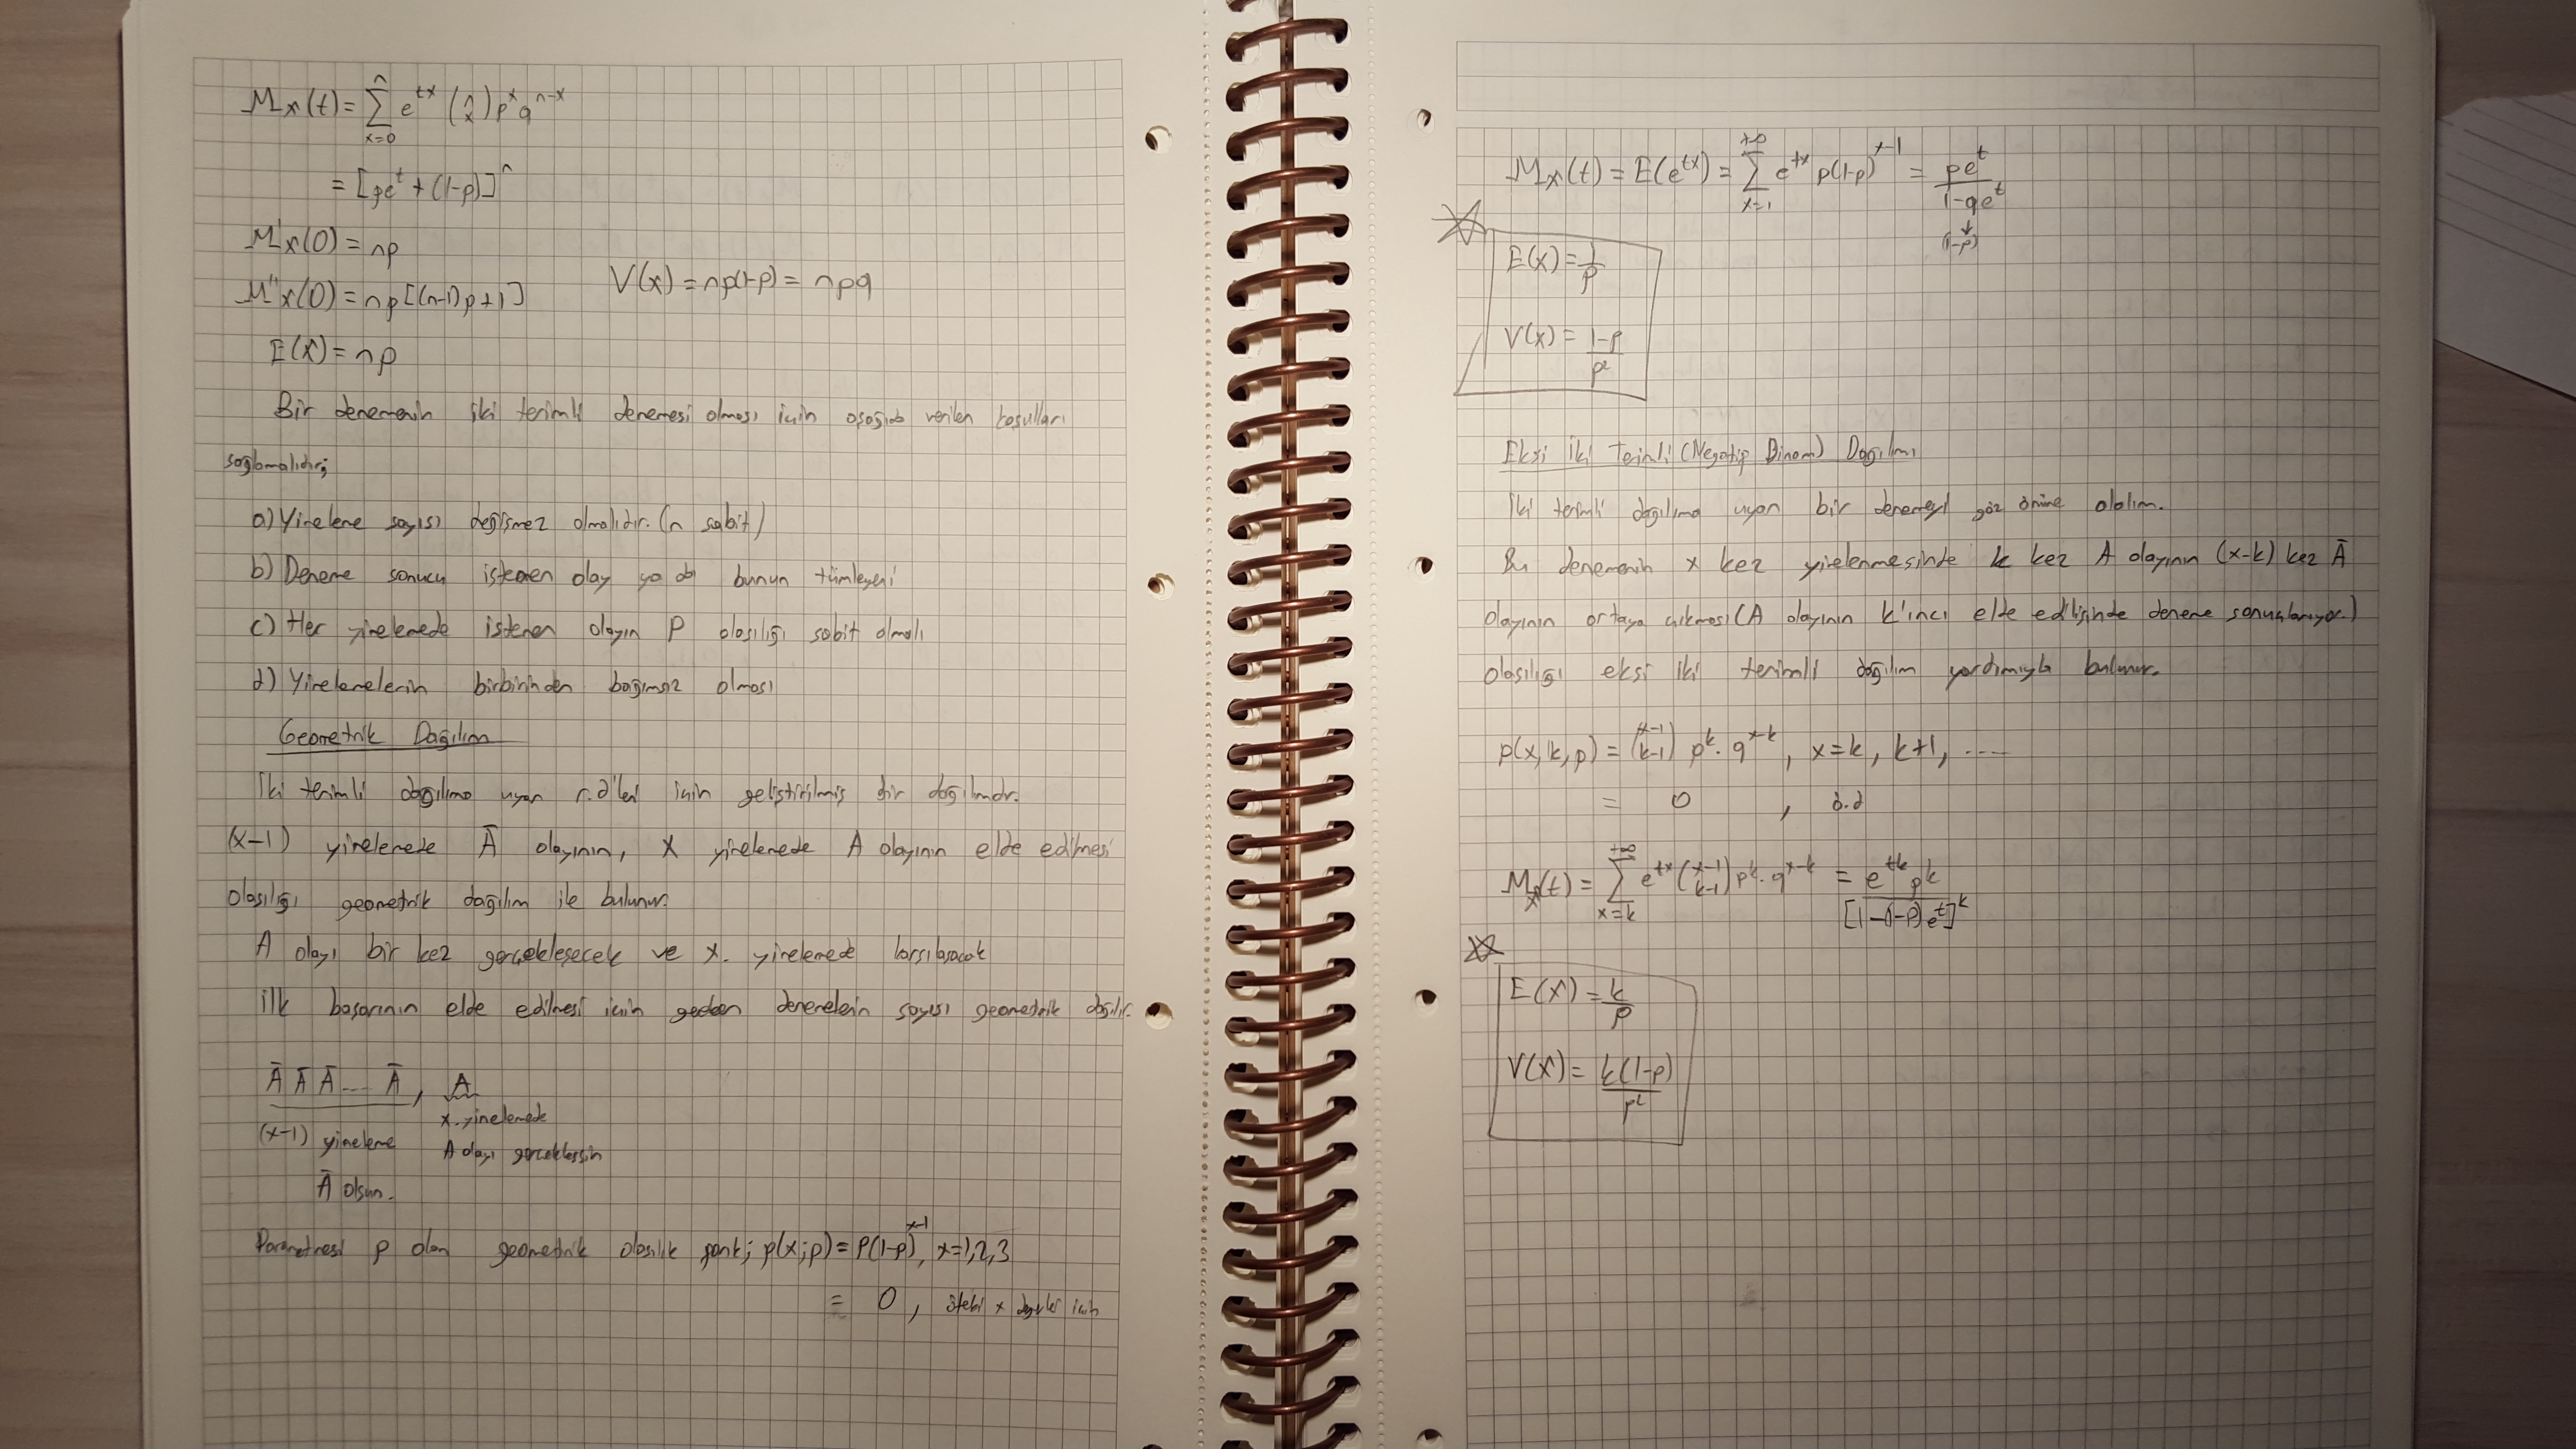 Mx(t) = ∑_{x=0}^{n} e^{tx} (n x) p^x q^{n-x}
= [pe^t + (1-p)]^n
M'x(0) = np
M''x(0) = np[(n-1)p+1]
V(x) = np(1-p) = npq
E(X) = np
Bir denemenin iki terimli denemesi olması için aşağıda verilen koşulları
sağlamalıdır;
a) Yinelene sayısı değişmez olmalıdır. (n sabit)
b) Deneme sonucu istenen olay ya da bunun tümleyeni
c) Her yinelemede istenen olayın P olasılığı sabit olmalı
d) Yinelemelerin birbirinden bağımsız olması
Geometrik Dağılım
İki terimli dağılıma uyan r.d'leri için geliştirilmiş bir dağılımdır.
(x-1) yinelemede Ā olayının, X yinelemede A olayının elde edilmesi
olasılığı geometrik dağılım ile bulunur.
A olayı bir kez gerçekleşecek ve x. yinelemede karşılaşacak
ilk başarının elde edilmesi için geden denemelerin sayısı geometrik dağılır.
Ā Ā Ā .... Ā , A
(x-1) yineleme
Ā olsun.
x. yinelemede
A olayı gerçekleşsin
Parametresi p olan geometrik olasılık fonk; p(x;p) = P(1-p)^{x-1}, x=1,2,3
= 0 , öteki x değerleri için
Mx(t) = E(e^{tx}) = ∑_{x=1}^{+∞} e^{tx} p(1-p)^{x-1} = pe^t / 1-qe^t
↓
(1-p)
E(X) = 1/p
V(X) = 1-p / p²
Eksi İki Terimli (Negatif Binom) Dağılımı
İki terimli dağılıma uyan bir denemeyi göz önüne alalım.
Bu denemenin x kez yinelenmesinde k kez A olayının (x-k) kez Ā
olayının ortaya çıkması (A olayının k'ıncı elde edilişinde deneme sonuçlanıyor.)
olasılığı eksi iki terimli dağılım yardımıyla bulunur.
p(x,k,p) = (x-1 k-1) p^k . q^{x-k} , x=k, k+1, ....
= 0 , ö.d
Mx(t) = ∑_{x=k}^{+∞} e^{tx} (x-1 k-1) p^k . q^{x-k} = e^{tk} p^k / [1-(1-p)e^t]^k
E(X) = k/p
V(X) = k(1-p) / p²